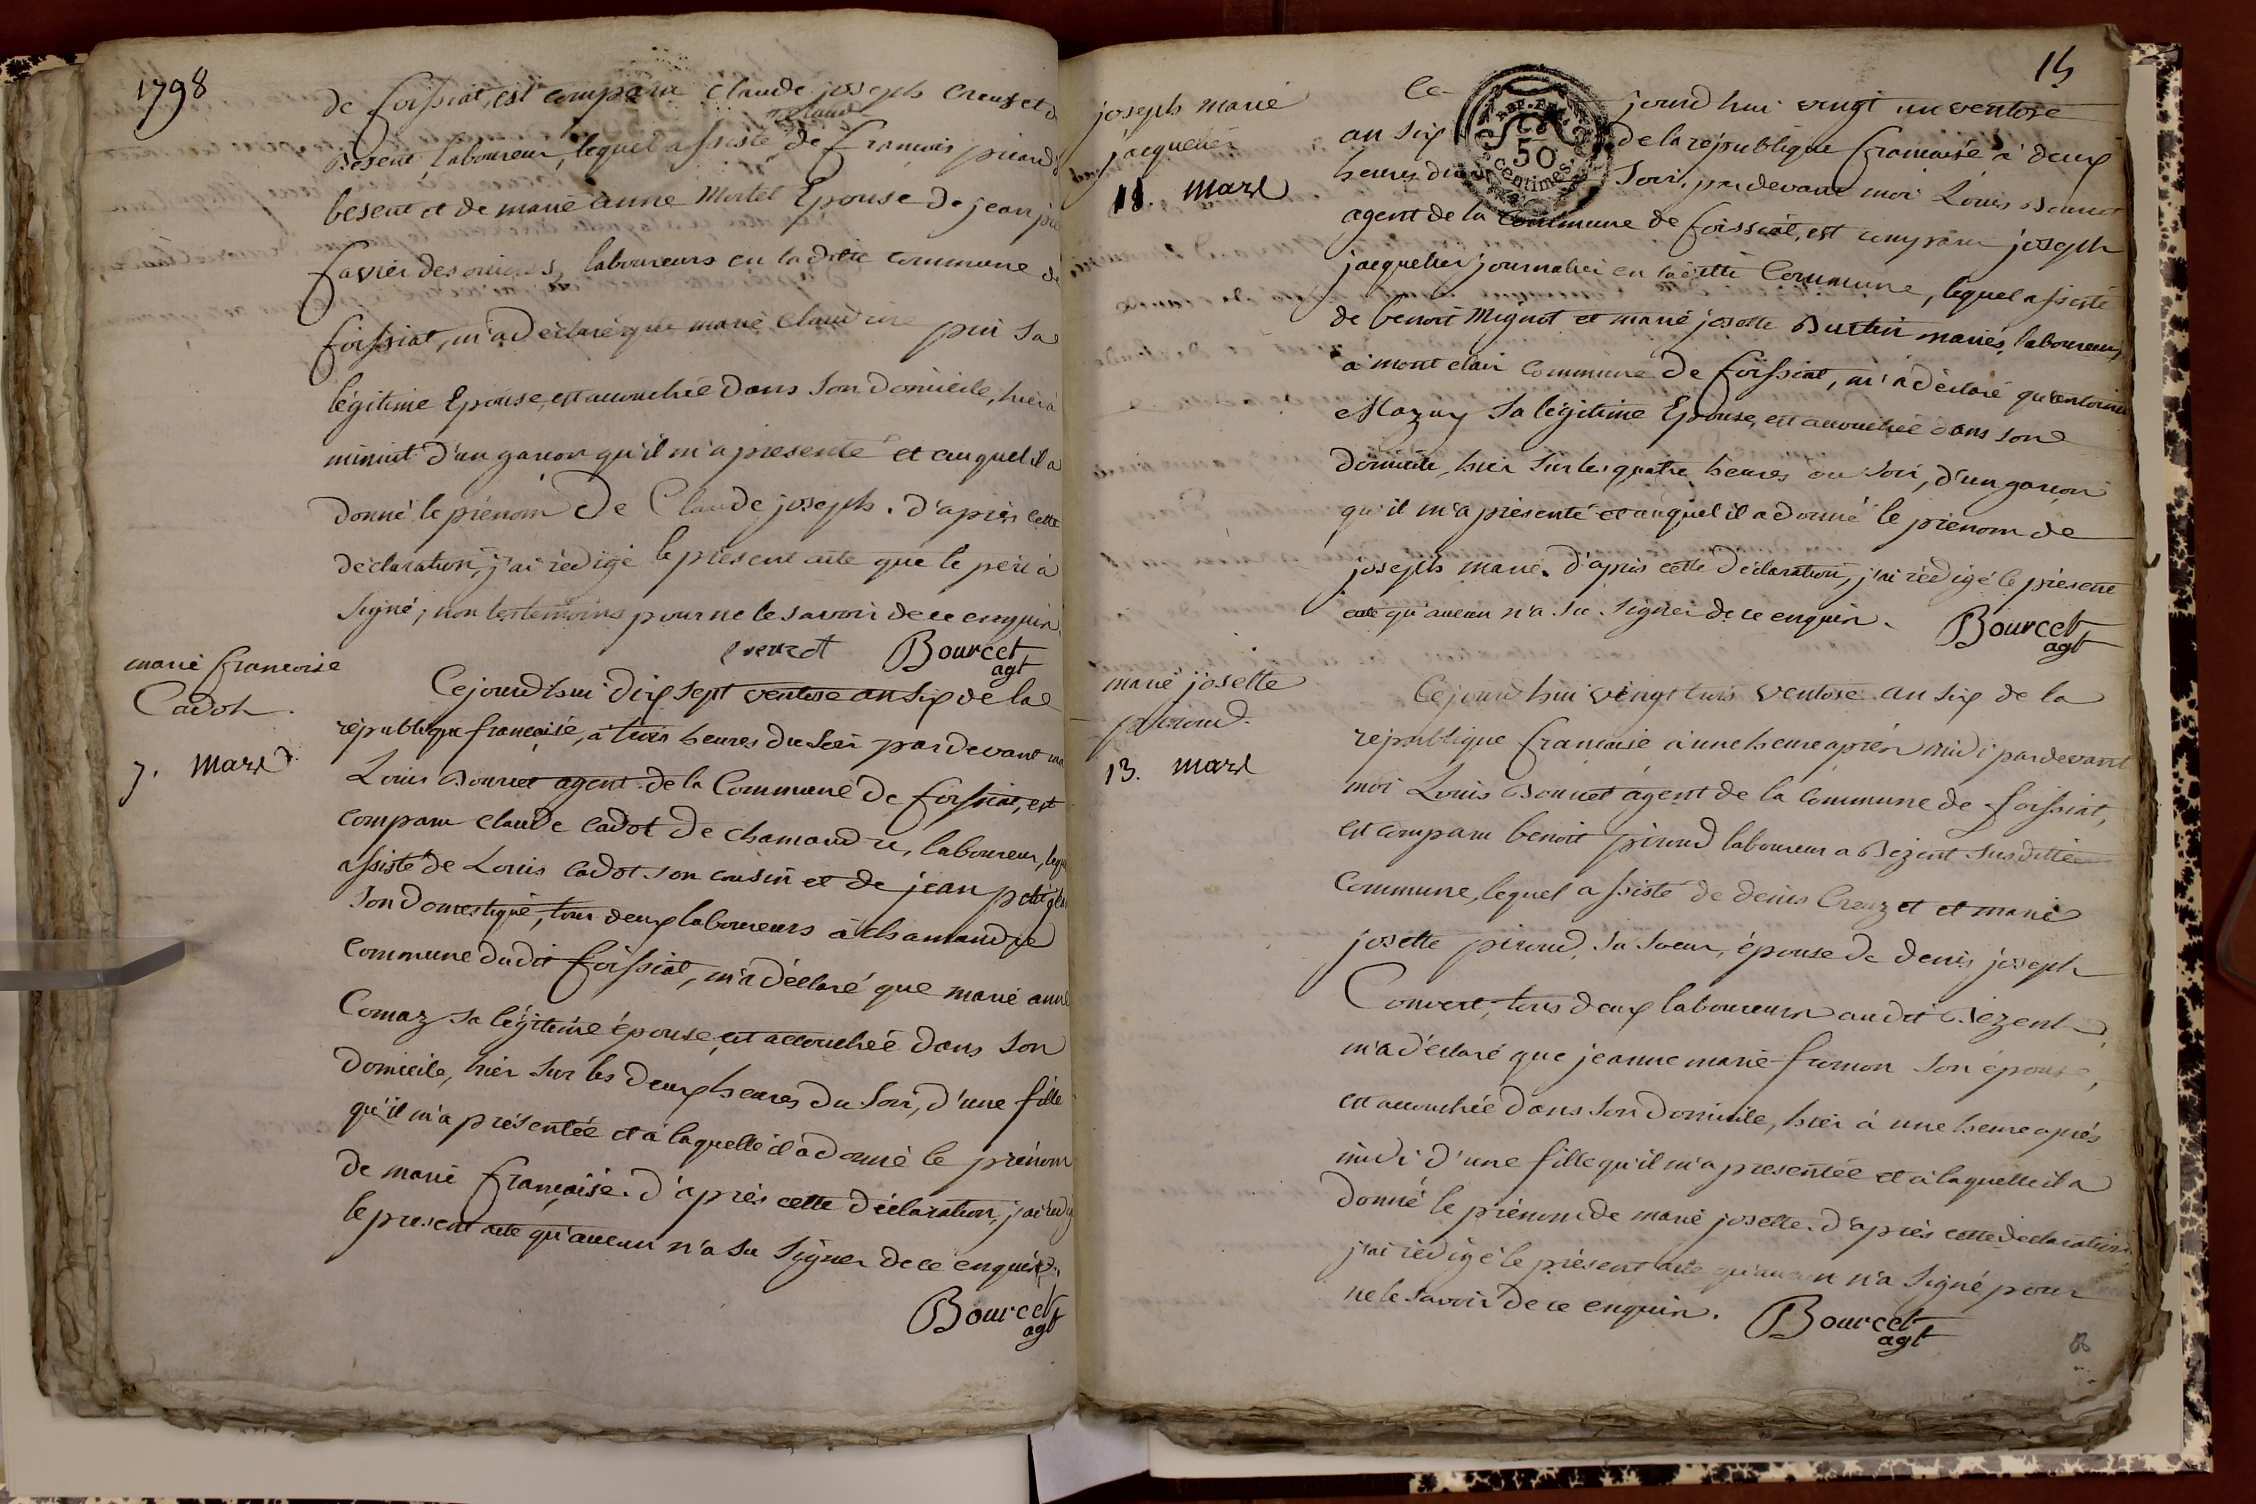 1798
de foissiat, est comparu Claude joseph Creuzet d
Besent, laboureur, lequel assisté de francois
besent et de marie anne Mortel Epouse de jean
favier desorieres, laboureurs en la ditte commune de
foissiat, m'a déclaré que marie Claudine pin sa
légitime Epouse, est accouchée dans son domicile, hier à
minuit d'un garcon qu'il m'a presenté et auquel il a
donné le prénom de Claude joseph. d'après cette
déclaration, j'ai rédigé le présent acte que le père à
signé, non les temoins pour ne le savoir de ce enquis.
Bourcet
agt
marie francoise
Cadot.
7. Mars
Cejourd'hui dix sept ventose an six de la
république française, à trois heures du soir par devant moi
Louis Bourcet agent de la Commune de foissiat, est
comparu claude cadot de chamandre, laboureur, lequel
assisté de Louis cadot son cousin et de jean
son domestique, tous deux laboureurs à chamandre
commune dudit foissiat, m'a déclaré que marie anne
Comaz sa légitime épouse est accouchée dans son
domicile, hier sur les deux heures du soir, d'une fille
qu'il m'a présentée et à laquelle il à donné le prénom
de marie françoise. d'après cette déclaration, j'ai rédigé
le present acte qu'aucun n'a su signer de ce enquis.
Bourcet
agt
15
joseph marie
jacquelier
11. Mars
Ce jourd hui vingt un ventose
REP. FRA.
50
centimes
an six de la république francaise à deux
heures du soir, par devant moi Louis Bourcet
agent de la Commune de foissiat, est comparu joseph
jacquelier journalier en la ditte Commune, lequel assisté
de benoit Mignot et marie josette Buttin mariés, laboureurs
a mont clair Commune de foissiat, m'a déclaré qu'antoinette
Mazuy sa légitime Epouse, est accouchée dans son
domicile, hier sur les quatre heures du soir, d'un garcon
qu'il m'a présenté et auquel il a donné le prenom de
joseph marie. d'après cette déclaration, j'ai rédigé le présent
acte qu'aucun n'a su signer de ce enquis.
Bourcet
agt
marie josette
piroud.
13. Mars
Cejourd hui vingt trois ventose an six de la
république francaise à une heure après midi par devant
moi Louis Bourcet agent de la commune de foissiat,
est comparu benoit piroud laboureur a Bezent susditte
Commune, lequel assisté de denis Creuzet et marie
josette piroud, sa soeur, épouse de denis joseph
Convert, tous deux laboureurs audit Bezent,
m'a déclaré que jeanne marie fromon son épouse,
est accouchée dans son domicile, hier à une heure après
midi d'une fille qu'il m'a presentée et à laquelle il a
donné le prénom de marie josette. d'après cette déclaration
j'ai rédigé le présent acte qu'aucun n'a signé pour
ne le savoir de ce enquis.
Bourcet
agt